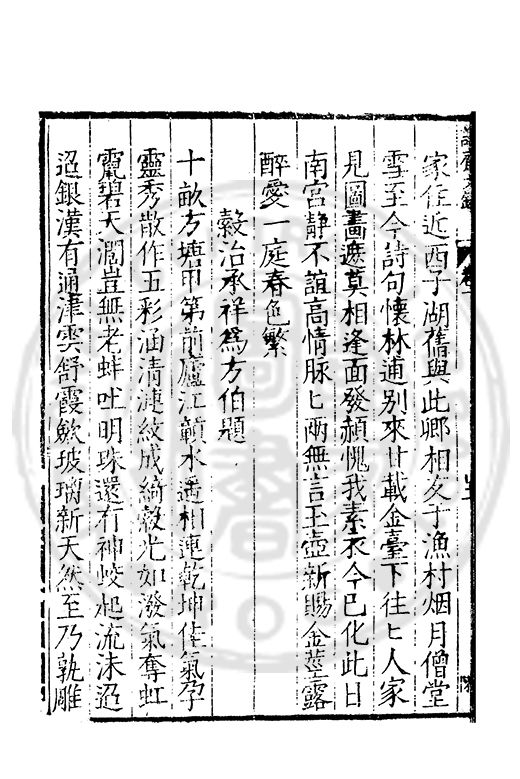 家住近西子湖舊與此卿相友于漁村烟月僧堂
雪至今詩句懷林逋别來廿載金臺下往匕人家
見圖畫遮莫相逢面發赬愧我素衣今已化此日
南宫靜不諠高情脉匕兩無言玉壺新賜金莖露
醉愛一庭春色繁
縠治承祥爲方伯題
十畝方塘甲第前廬江䫫水遥相連乾坤佳氣孕
靈秀散作五彩涵清漣紋成綺縠光如潑氣奪虹
霓碧天濶豈無老蚌吐明珠還有神蛟起流沫迢
迢銀漢有通津雲舒霞歛玻瓈新天然至乃孰雕
卷一